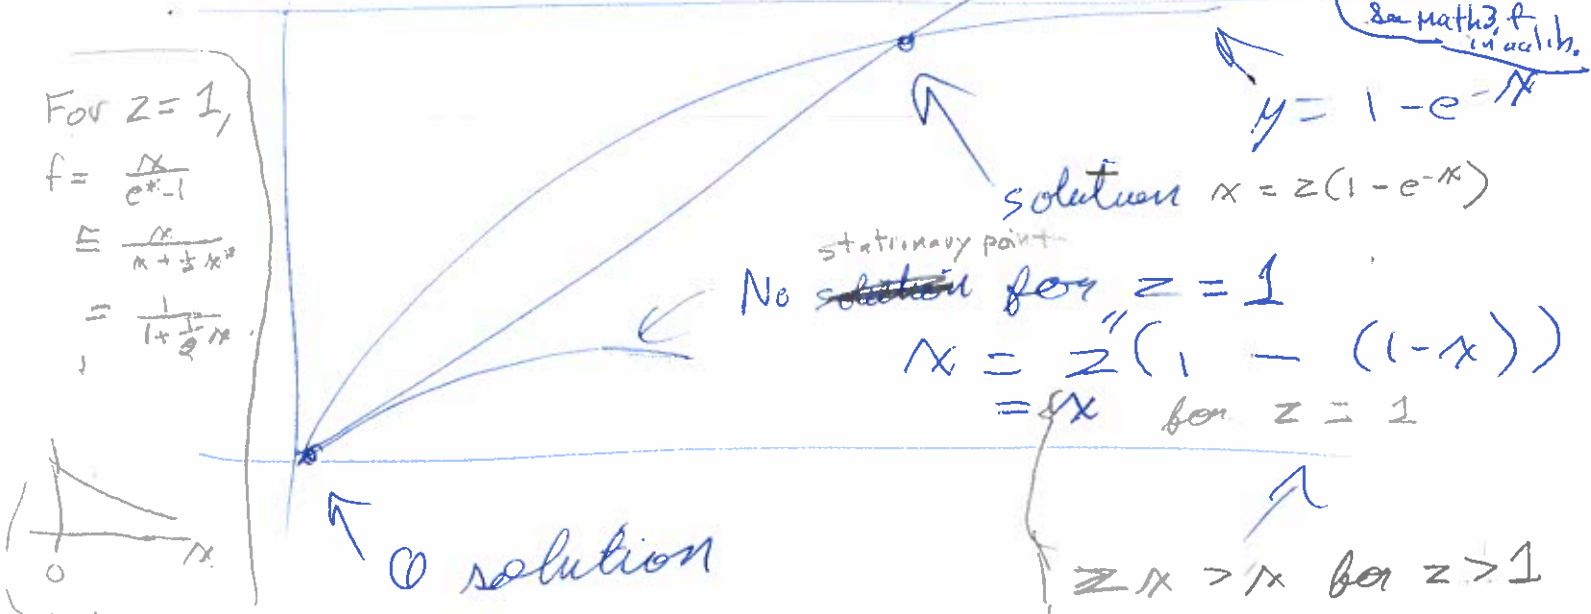 See Math3.f
in aclib.
y = 1 - e^-x
For z = 1,
f = x / (e^x - 1)
≅ x / (x + ½ x²)
= 1 / (1 + ½ x)
solution x = z(1 - e^-x)
stationary point
No solution for z = 1
x = z"(1 - (1-x))
= x for z = 1
0 solution
zx > x for z > 1
0
x